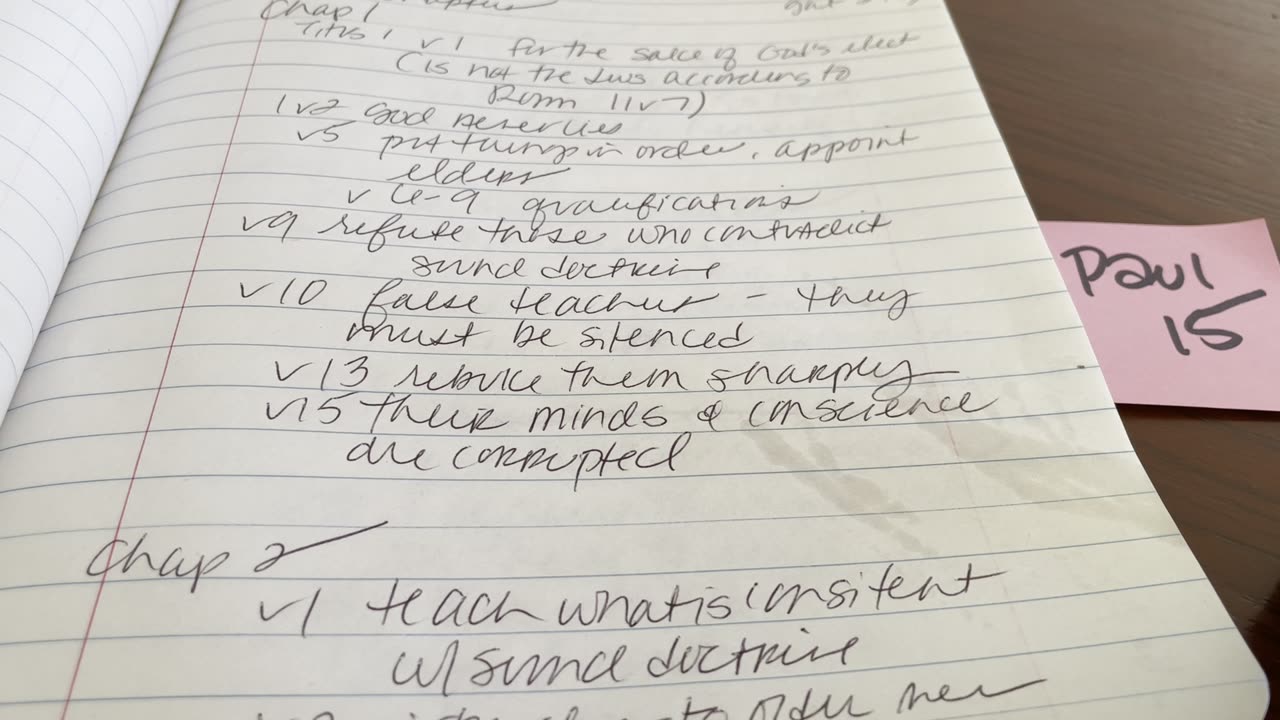 Chap 1
Titus 1 v1 for the sake of God's elect
(is not the Jews according to
Rom 11v7)
1v2 God
v5 put things in order, appoint
elders
v 6-9 qualifications
v9 refute those who contradict
sound doctrine
v10 false teachers - they
must be silenced
v13 rebuke them sharply
v15 their minds & conscience
are corrupted
Chap 2
v1 teach what is consitent
w/ sound doctrine
to older men
Paul
15